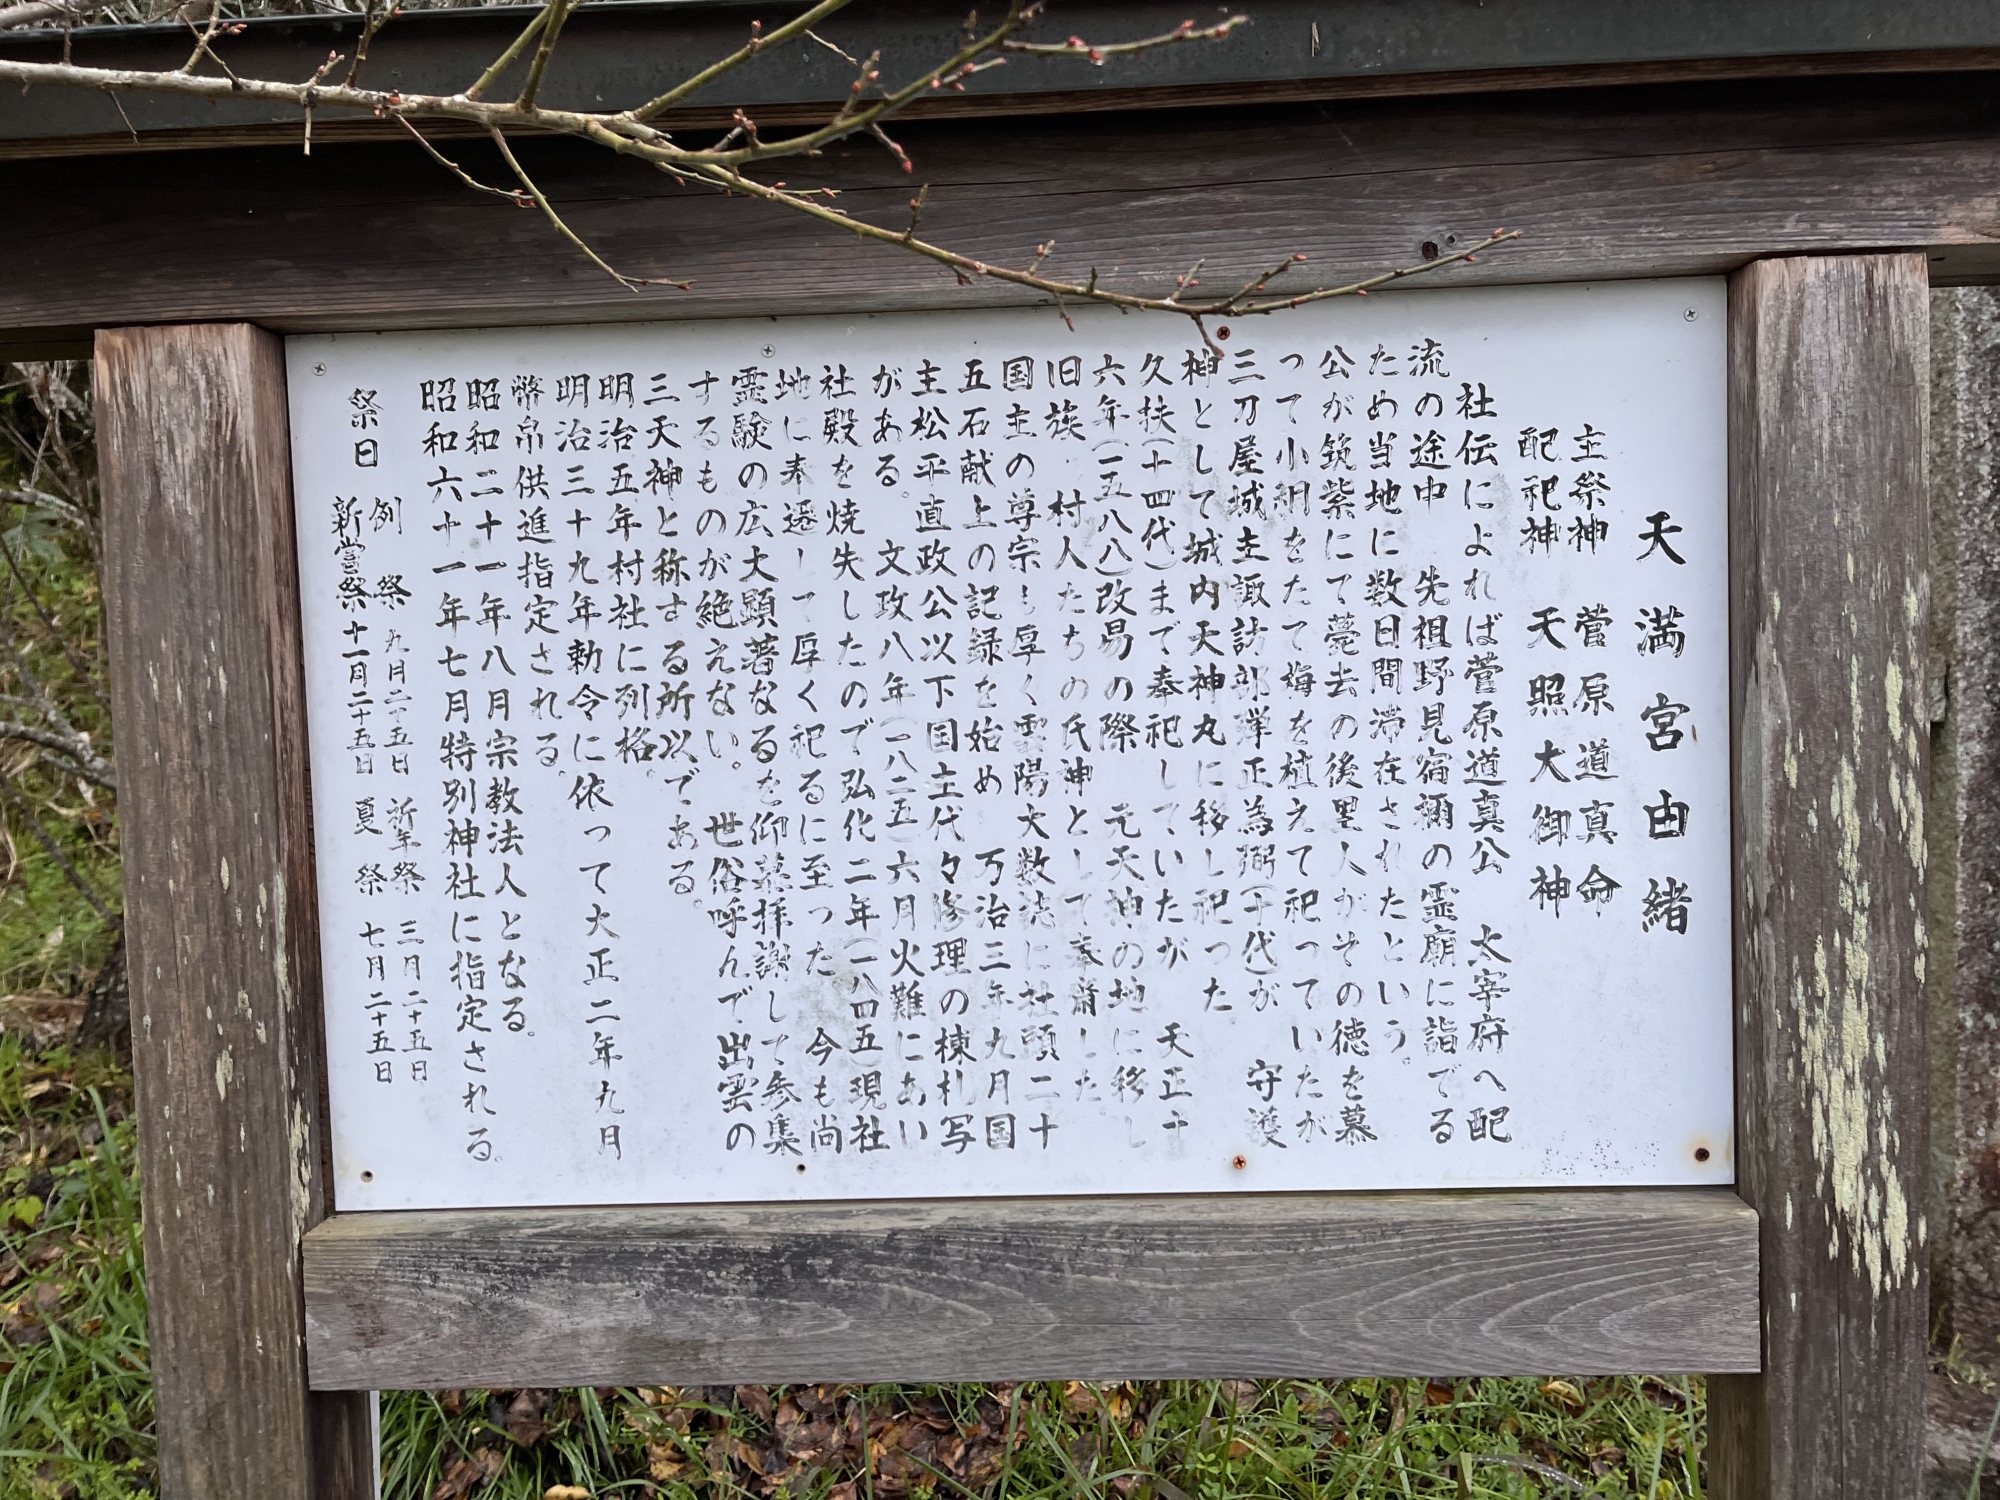 天満宮由緒
主祭神 菅原道真命
配祀神 天照大御神
社伝によれば菅原道真公 太宰府へ配
流の途中 先祖野見宿禰の霊廟に詣でる
ため当地に数日間滞在されたという。
公が筑紫にて薨去の後里人がその徳を慕
って小祠をたて梅を植えて祀っていたが
三刀屋城主諏訪部弾正為弼(十代)が 守護
神として城内天神丸に移し祀った
久扶(十四代)まで奉祀していたが 天正十
六年(一五八八)改易の際 元天神の地に移し
旧族 村人たちの氏神として奉斎した
国主の尊宗も厚く雲陽大数誌に社頭二十
五石献上の記録を始め 万治三年九月国
主松平直政公以下国主代々修理の棟札写
がある。文政八年(一八二五)六月火難にあい
社殿を焼失したので弘化二年(一八四五)現社
地に奉遷して厚く祀るに至った 今も尚
霊験の広大顕著なるを仰慕拝謝して参集
するものが絶えない。世俗呼んで出雲の
三天神と称する所以である。
明治五年村社に列格。
明治三十九年勅令に依って大正二年九月
幣帛供進指定される。
昭和二十一年八月宗教法人となる。
昭和六十一年七月特別神社に指定される。
祭日 例祭 九月二十五日 祈年祭 三月二十五日
新嘗祭 十一月二十五日 夏祭 七月二十五日